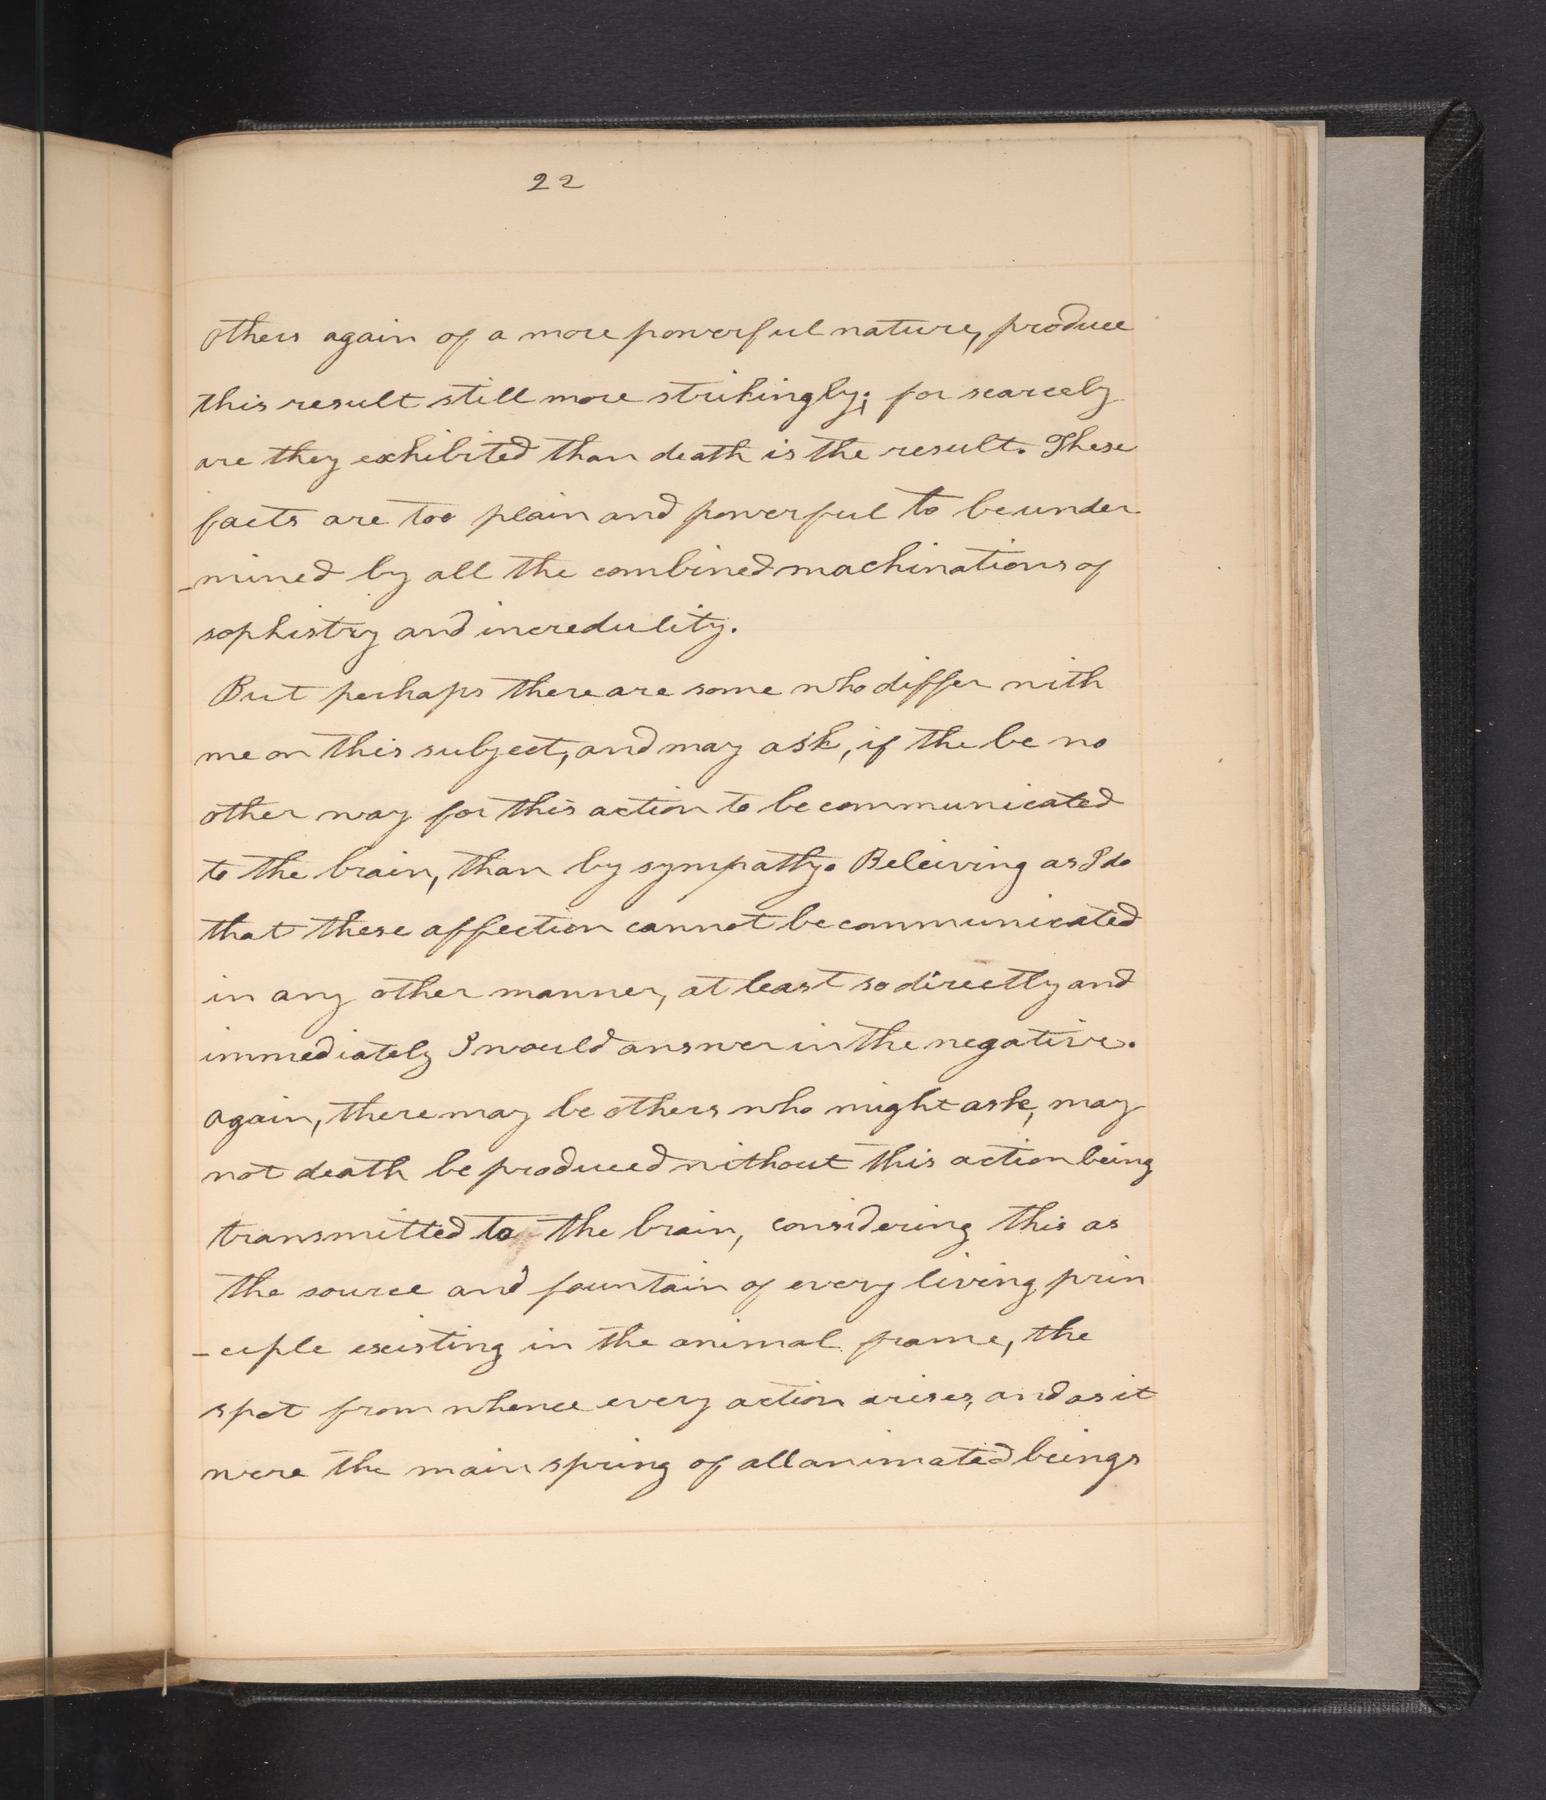 22
others again of a more powerful nature, produce
this result still more strikingly; for scarcely
are they exhibited than death is the result. These
facts are too plain and powerful to be under
-mined by all the combined machinations of
sophistry and incredulity.
But perhaps there are some who differ with
me on this subject, and may ask, if the be no
other way for this action to be communicated
to the brain, than by sympathy. Beleiving as I do
that these affection cannot be communicated
in any other manner, at least so directly and
immediately I would answer in the negative.
again, there may be others who might ask, may
not death be produced without this action being
transmitted to the brain, considering this as
the source and fountain of every living prin
-ciple existing in the animal frame, the
spot from whence every action arises, and as it
were the main spring of all animated beings